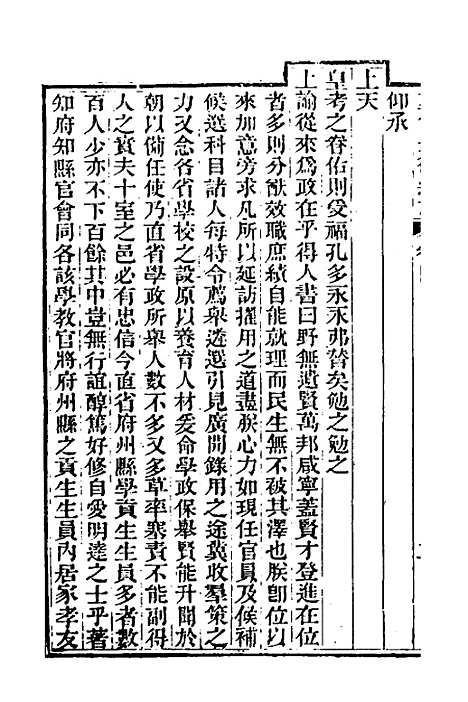 仰承
上天
皇考之眷佑則受福孔多永永弗替矣勉之勉之
上諭從來爲政在乎得人書曰野無遺賢萬邦咸寧蓋賢才登進在位
者多則分猷效職庶績自能就理而民生無不被其澤也朕卽位以
來加意旁求凡所以延訪擢用之道盡朕心力如現任官員及候補
候選科目諸人每特令薦舉遴選引見廣開錄用之途冀收羣策之
力又念各省學校之設原以養育人材爰命學政保舉賢能升聞於
朝以備任使乃直省學政所舉人數不多又多草率塞責不能副得
人之實夫十室之邑必有忠信今直省府州縣學貢生生員多者數
百人少亦不下百餘其中豈無行誼醇篤好修自愛明達之士乎著
知府知縣官會同各該學教官將府州縣之貢生生員內居家孝友